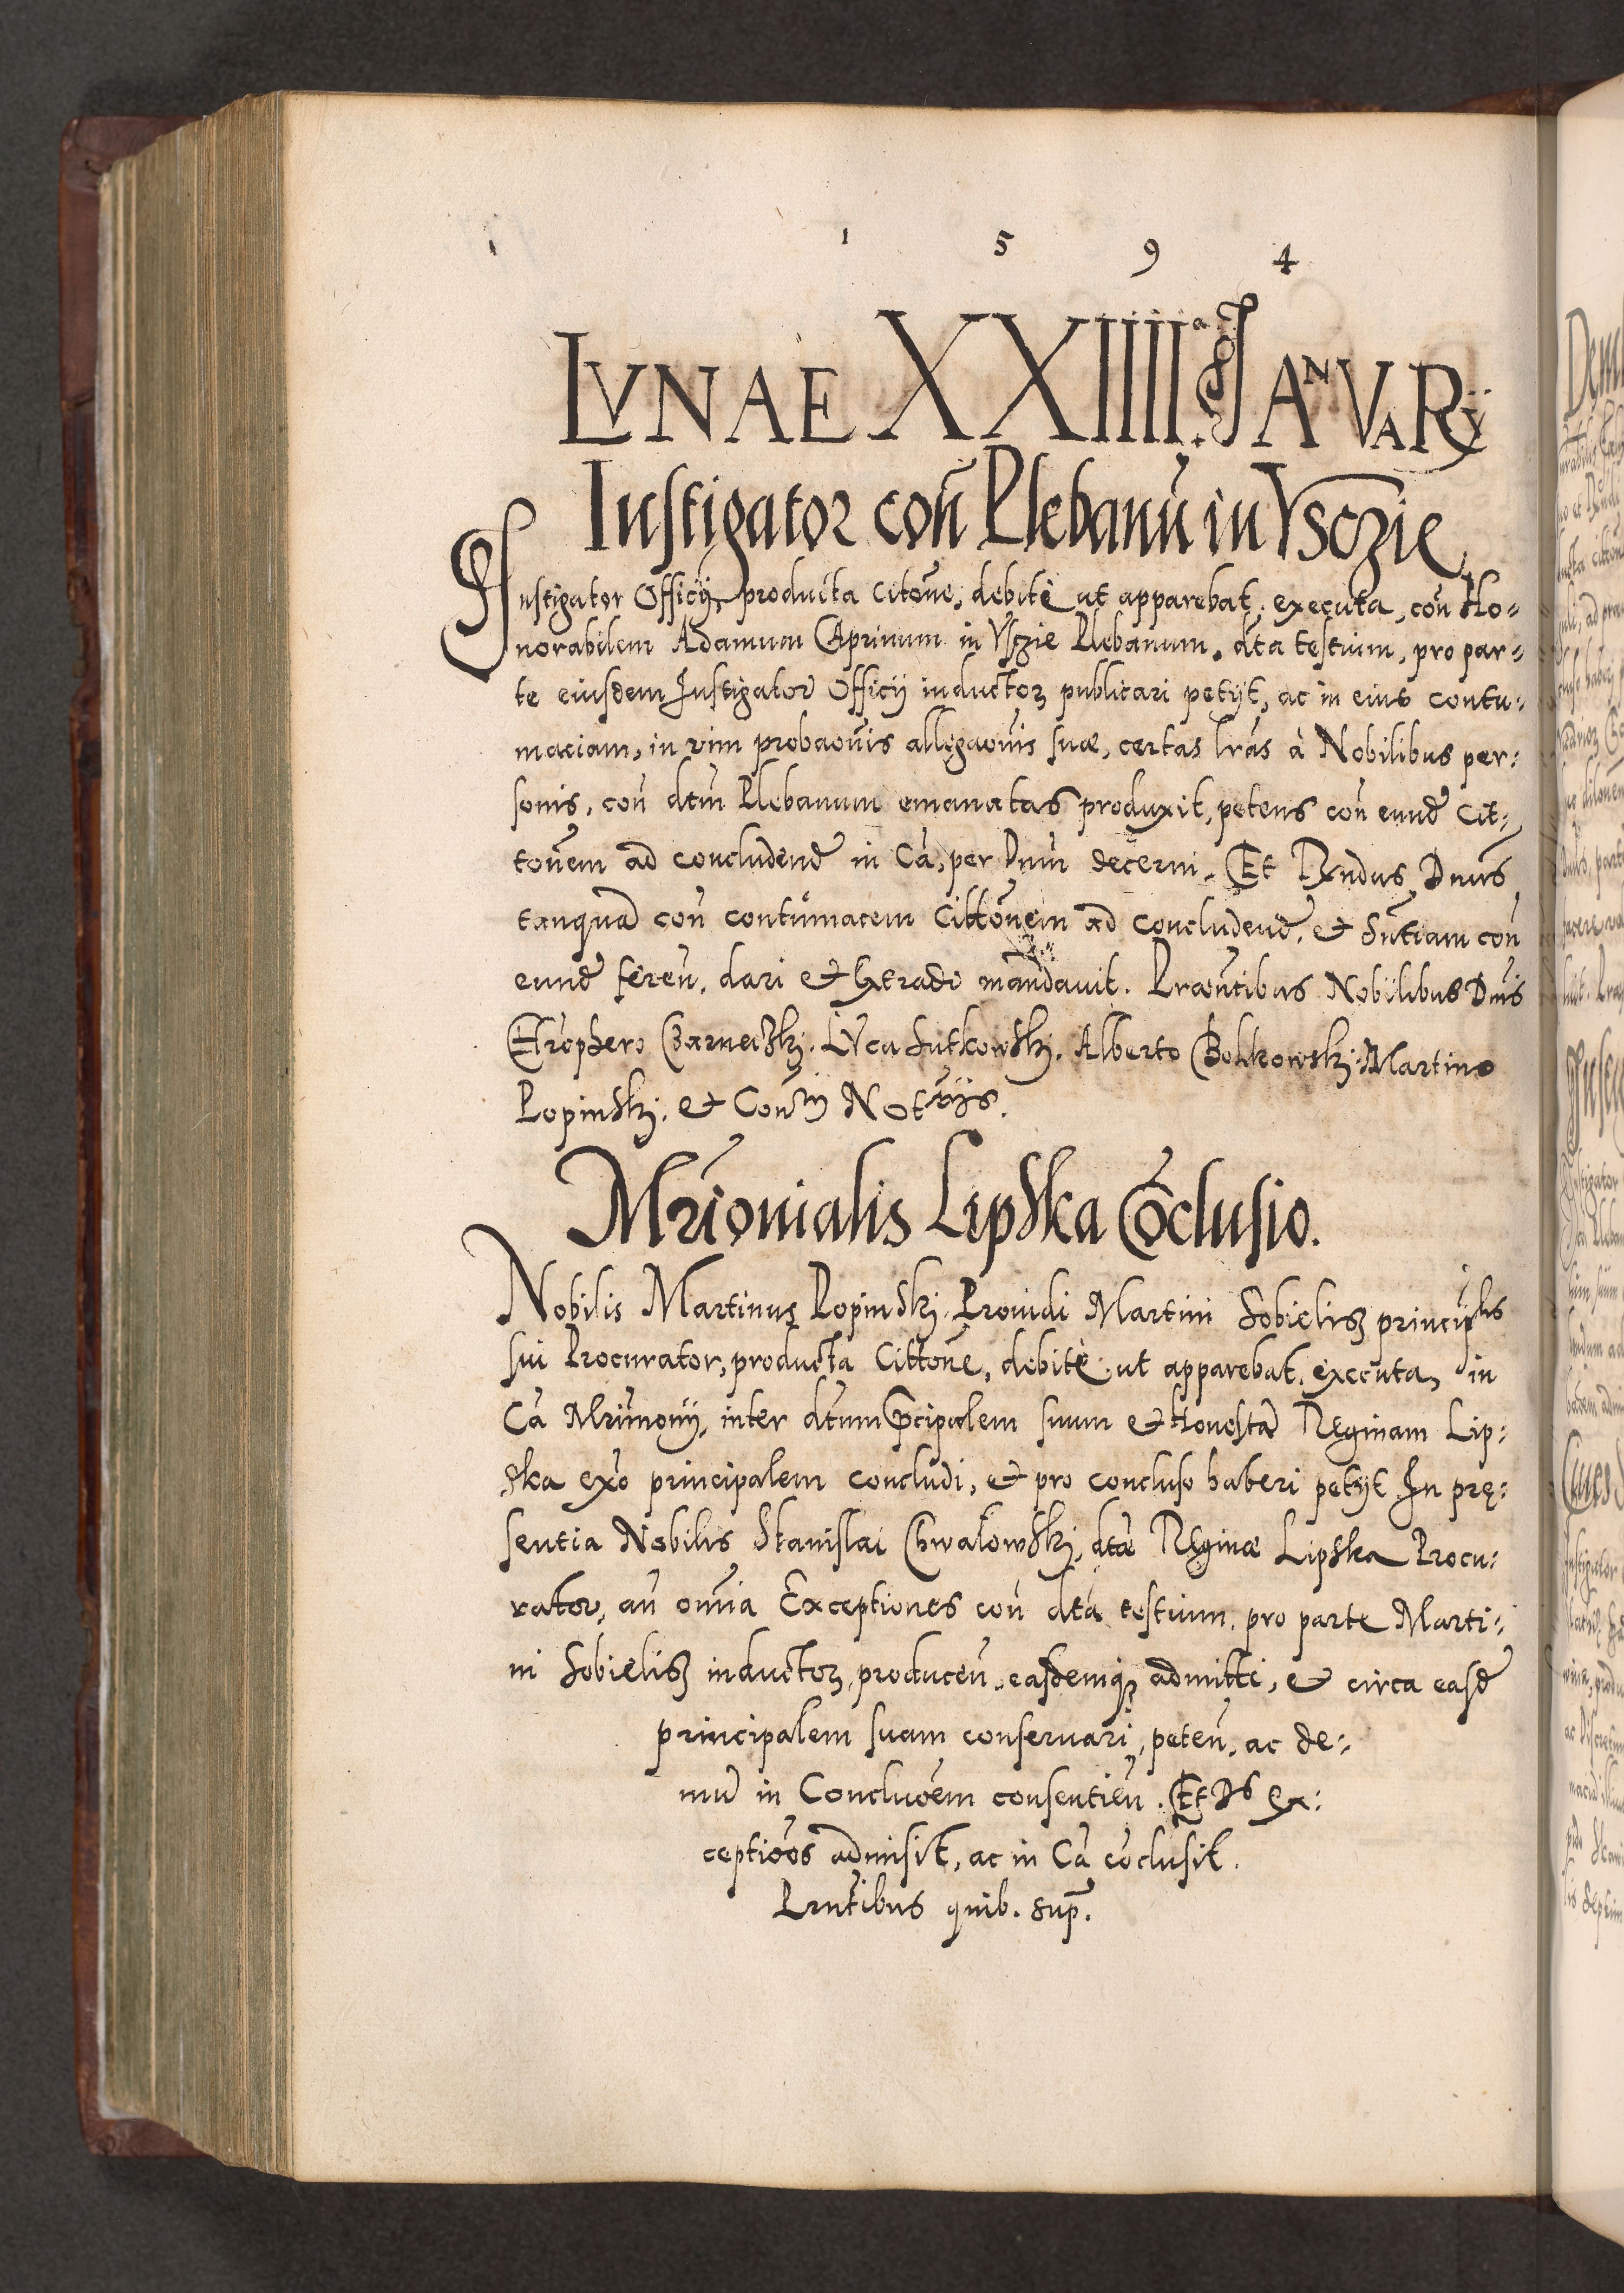 1 5 9 4
LVNAE XXIIII.a JANVARY
Instigator coñ Plebanũ in Vsczie
Instigator Officij, producta citoñe, debitè ut apparebat, executa, coñ Ho=
norabilem Adamum Caprinum in Vsczie Plebanum, dta testium, pro par=
te eiusdem Instigator Officij inductorz publicari petijt, ac in eius contu=
maciam, in vim probaoñis allegaoñis suæ, certas lrãs à Nobilibus per=
sonis, coñ dtm̃ Plebanum emanatas produxit, petens coñ eund̃ Cit=
toñem ad concludend̃ in Cã, per Dnũm decerni. Et Rndus Dnus
tanquã coñ contumacem Cittoñem ad concludend̃, et Sñtiam coñ
eund̃ fereñ, dari et extradi mandauit. Præñtibus Nobilibus Dnis
Czarnecski, Lvca Sutkowski, Alberto Bolikowski, Martino
Popinski, et Coñ Notrijs.
Mrĩonialis Lipska Cõclusio.
Nobilis Martinus Popinski, Prouidi Martini Sobielisz principlis
sui Procurator, producta Cittoñe, debitè ut apparebat, executa, in
Cã Mrĩmonij, inter dtum Pcipalem suum et Honestã Reginam Lip=
ska exõ principalem concludi, et pro concluso haberi petijt. In pre=
sentia Nobilis Stanislai Chwalowski, dtæ Reginæ Lipska Procu=
rator, añ omñia Exceptiones coñ dtã testium, pro parte Marti=
ni Sobielisz inductorz, produceñ, easdemq; admitti, et circa easd̃
principalem suam conseruari, peteñ, ac de=
mũ in Conclusoẽm consentieñ. Et Ds Ex=
ceptioẽs admisit, ac in Cã cõclusit.
Prñtibus quib. sup.